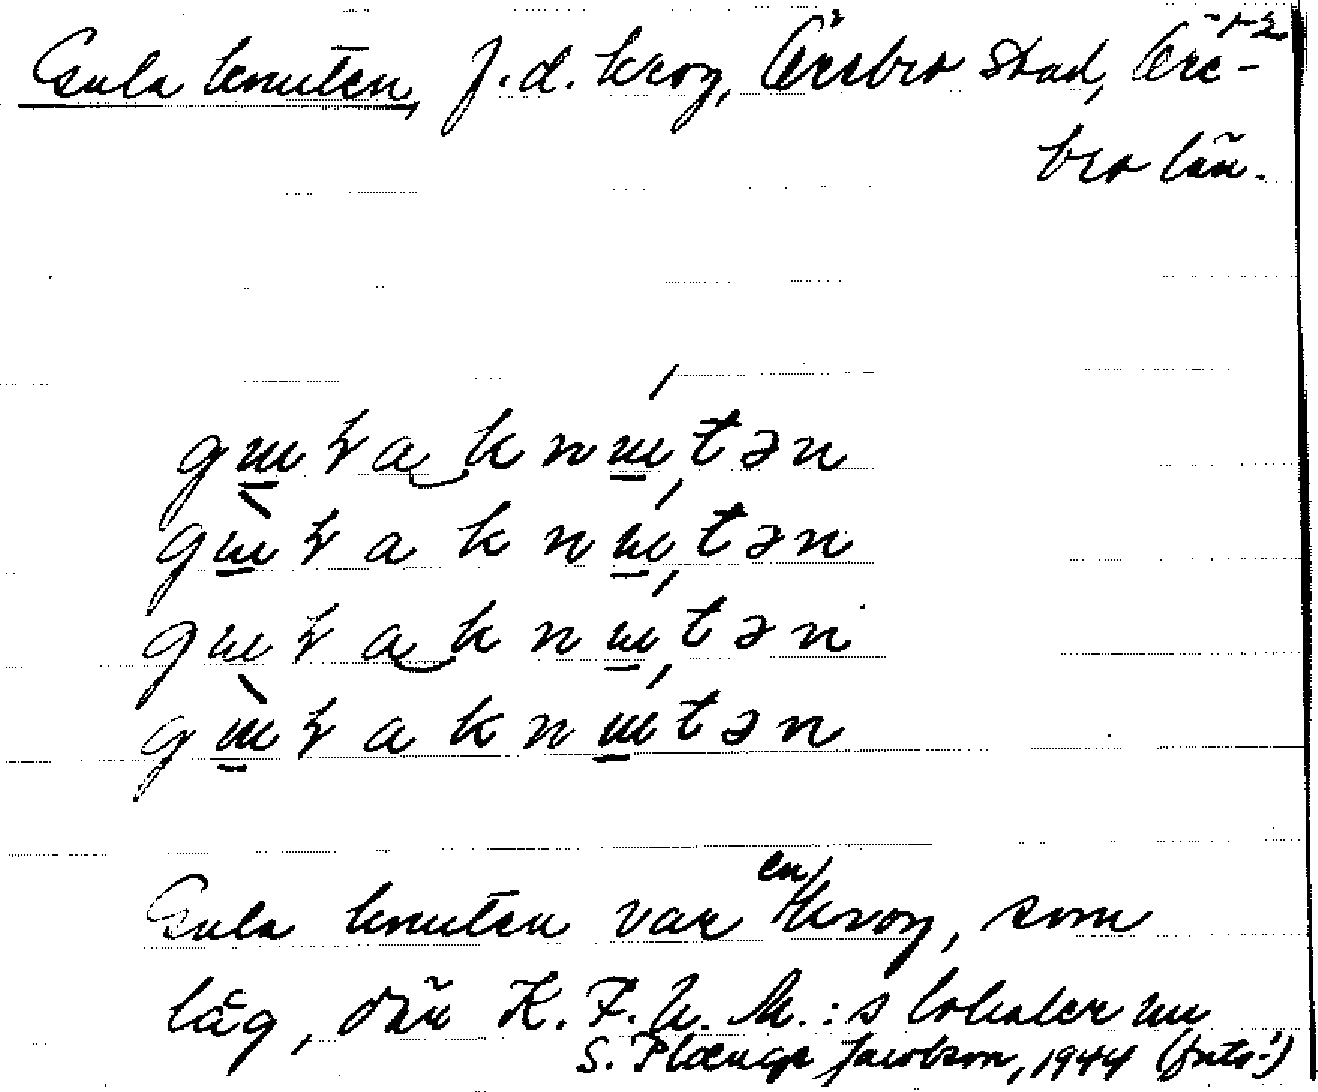 Gula knuten, f.d. krog, Örebro stad, Öre-
bro län.
gɯɽa‿knɯ́tən
gɯ̀ɽa knɯ́tən
gɯɽa‿knɯ́tən
gɯ̀ɽa knɯ́tən
Gula knuten var en krog, som
låg, där K.F.U.M.:s lokaler nu
S. Jacobson, 1944